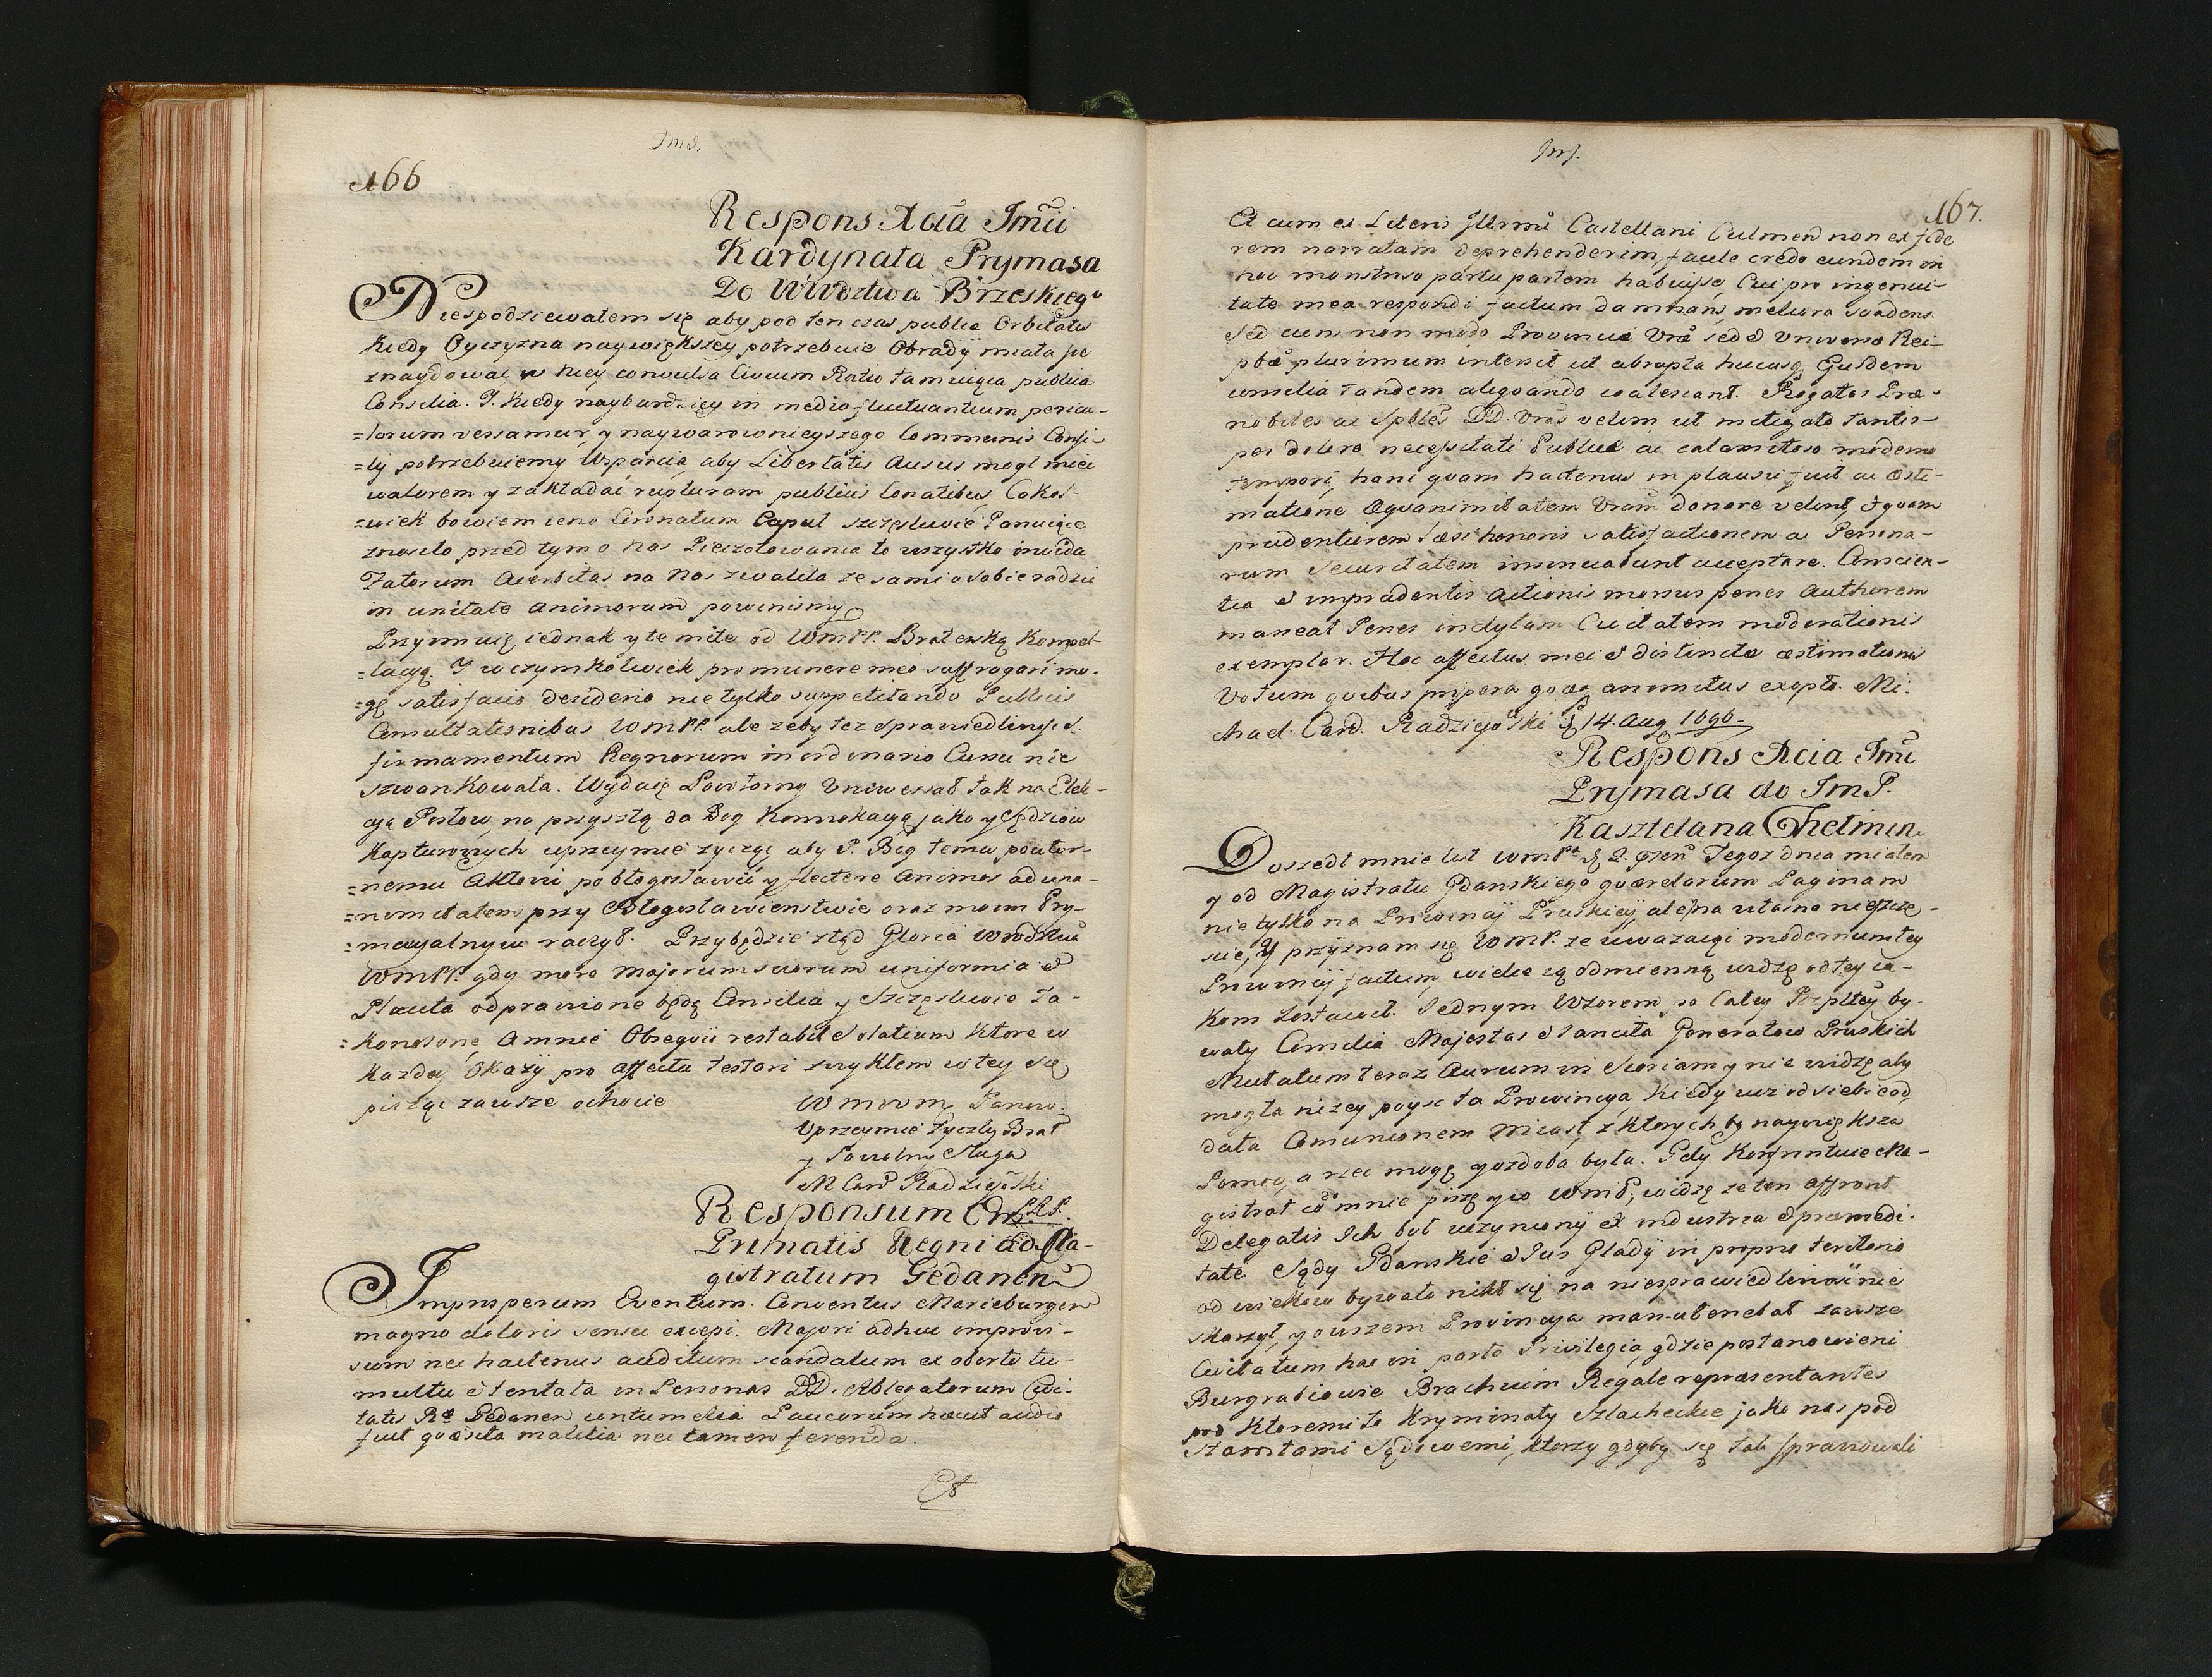 Jmś.
166
Respons Xcia Jmći
Kardynała Prymasa
Do Wwdztwa Brzeskiego
Niespodziewałem się aby pod ten czas publica Orbitatis
kiedy Oyczyzna naywiększey potrzebuie Obrady miała się
znaydować w niey convulsa Civium Ratio tamuiąca publica
Consilia. J. kiedy naybardziey in medio fluctuantium pericu-
=lorum versamur, y naywarownieyszego Communis Consi-
=lij potrzebuiemy Wsparcia, aby Libertatis Ausus mogł mieć
walorem y zakładać rupturam publicis Conatibus, Cokol-
=wiek bowiem ieno Coronatum Caput szczęsliwie Panuiące
znosiło przed tym o nas Pieczołowanie to wszystko invida
Fatorum Acerbitas na nas zwaliła ze sami o sobie radzić
in unitate animorum powinismy
Przyimuię iednak y te miłe od WmPP. Braterską Kompel-
=lacyą. J w czymkolwiek pro munere meo suffragari mo-
=gę satisfacio desiderio nie tylko suppetitando Publicis
Consultationibus WmPP. ale zeby tez Sprawiedliwość
firmamentum Regnorum in ordinario Cursu nie
szwankowała. Wydaię Powtorny Uniwersał tak na Elek-
cyą Posłow na przyszłą da Bog Konwokacyą jako y Sędziow
Kapturowych uprzeymie zyczę aby P. Bog temu powtor-
=nemu Aktowi pobłogosławić y flectere Animos ad una-
=nimitatem przy Błogosławienstwie oraz moim Pry-
=macyalnym raczył. Przybędzie ztąd Gloria Wwdztwu
WmPP. gdy more Majorum suorum uniformia et
Placita odprawione będą Consilia y Szczęsliwie Za-
=konczone, A mnie Obsequii restabit Solatium ktore w
kazdey Okazyi pro affectu testari zwykłem w tey się
pisząc zawsze ochocie
Wmm Panow.
Uprzeymie zyczly Brat
y Powolny Sługa
M Card Radzieiowski
Responsum
Primatis Regni ad Ma-
gistratum Gedanen
Improsperum Eventum Conventus Marieburgen
magno doloris sensu excepi. Majori adhuc improvi-
sum nec hactenus auditum scandalum ex oborto tu-
multu et tentata in Personas DD. Ablegatorum Civi-
tatis Rae Gedanen contumelia Paucorum haecut audio
fuit quaesita malitia nec tamen ferenda.
Et
Jnt.
167.
Et cum ex Literis Jllrmi Castellani Culmen non ex fide
rem narratam deprehenderim, facile credo eundem in
hoc monstroso partu partem habuisse, Cui pro ingenui-
tate mea respondi factum damnans meliora svadens
Sed cum non modo Provinciae Vrae sed et Universae Rei-
pbcae plurimum intersit ut abrupta hucusq Ejusdem
consilia tandem aliquando coalescant. Rogatas Prae-
nobiles ac Spbles DD. Vras velim ut mitigato tantis-
per dolore necessitati Publicae ac calamitoso moderno
tempori, hanc quam hactenus in plausu fuit ac aesti-
matione Aequanimitatem Vram donare velint, et quam
prudentiorem laesi honoris satisfactionem ac Persona-
rum Securitatem insinuabunt acceptare. Conscien-
tia et imprudentis actionis morsus penes Authorem
maneat Penes inclytam Civitatem moderationis
exemplar. Hoc affectus mei et distinctae aestimationis
Votum quibus prospera quaeq animitus exopto. Mi-
chael Card. Radzieiowski d 14. Aug 1696.
Respons Xcia Jmći
Prymasa do JmP.
Kasztelana Chełmin.
Doszedł mnie list WmPa d 2. praesen Tegoz dnia miałem
y od Magistratu Gdanskiego quaerelarum Paginam
nie tylko na Prowincyi Pruskiey, ale na własne nieszczę-
scie, y przyznam się WmP. ze uwazaiąc modernum tey
Prowincyi factum, wielce ią odmienną widzę od tey ia-
kom zostawił. Jednym Wzorem po całey Rzpltey by-
wały Consilia Majestas et sancita Generałow Pruskich
Mutatum teraz Aurum in Scoriam y nie widzę aby
mogła nizey poyść ta Prowincya, kiedy iuz od siebie od-
dała Comunionem miast, z ktorych by naywiększa
Pomoc, a rzec mogę y ozdoba była. Gdy Konjunktuie Ma-
gistrat co mnie piszę y co WmP, widzę ze ten affront
Delegatis Ich był uczyniony ex industria et praemedi-
tate. Sądy Gdanskie et Jus Gladij in proprio teritorio
od wiekow bywało nikt się na niesprawiedliwość nie
skarzył, y owszem Prowincya manutenebat zawsze
Civitatum hac in parte Privilegia, gdzie postanowieni
Burgrabiowie Brachium Regale repraesentantes
pod ktoremi to Kryminały Szlacheckie jako nas pod
Starostami Sądowemi, ktorzy gdyby się tak sprawowali